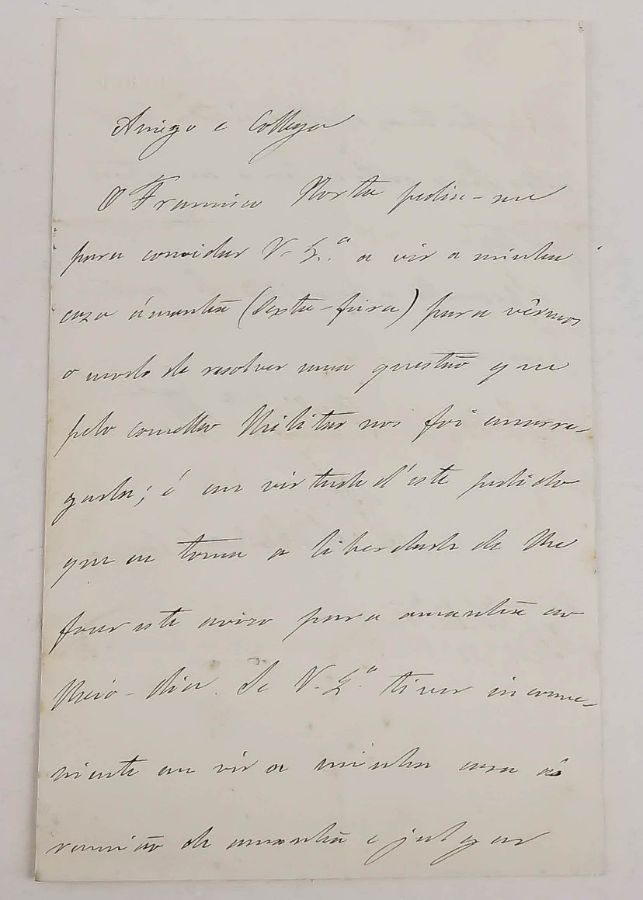 Amigo e Collega
O Francisco Horta pediu-me
para convidar V. Ex.ª a vir a minha
caza ámanhã (Sexta-feira) para vêrmos
o modo de resolver uma questão que
pelo concelho Militar nos foi encarre-
gada; é em virtude d'este pedido
que eu tomo a liberdade de lhe
fazer este avizo para amanhã ao
Meio-dia. Se V. Ex.ª tiver inconve-
niente em vir a minha caza á
reunião de amanhã e julgar